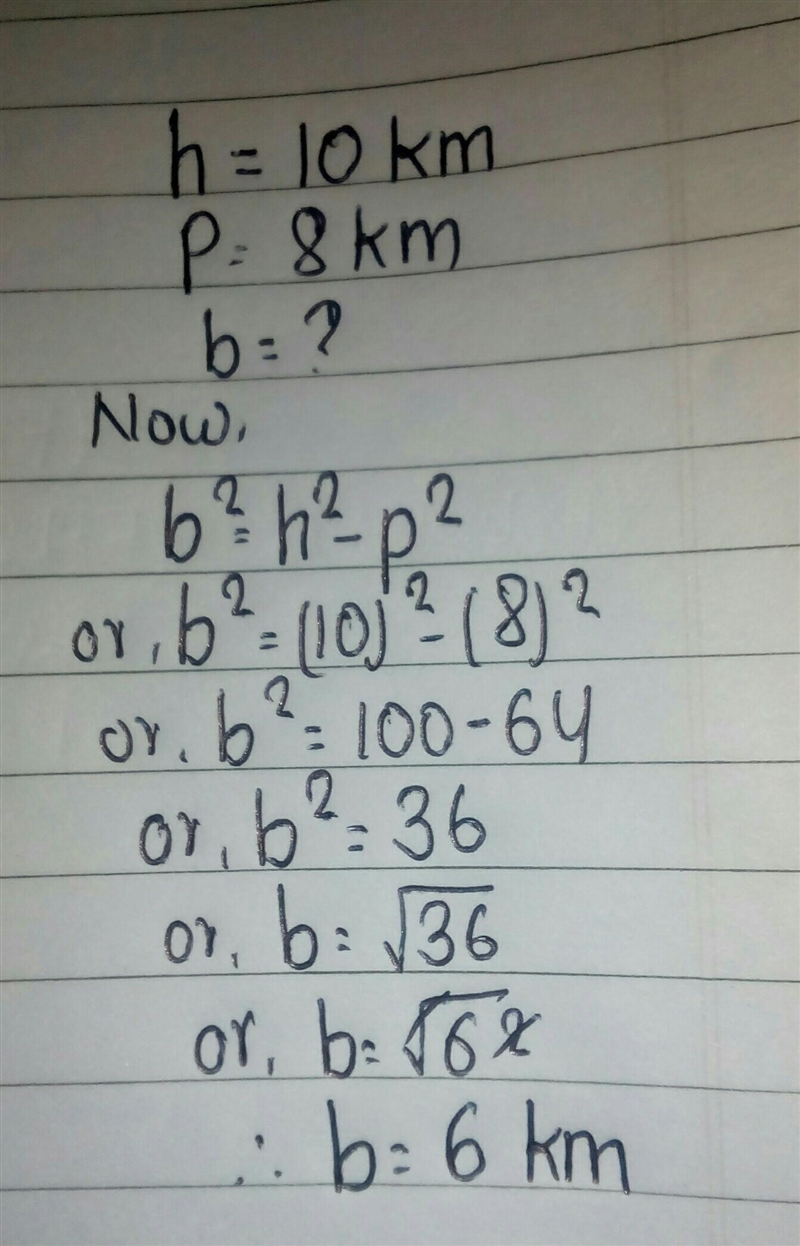 h = 10 km
P = 8 km
b = ?
Now,
b² = h² - p²
or, b² = (10)² - (8)²
or, b² = 100 - 64
or, b² = 36
or, b = √36
or, b = √6²
∴ b = 6 km